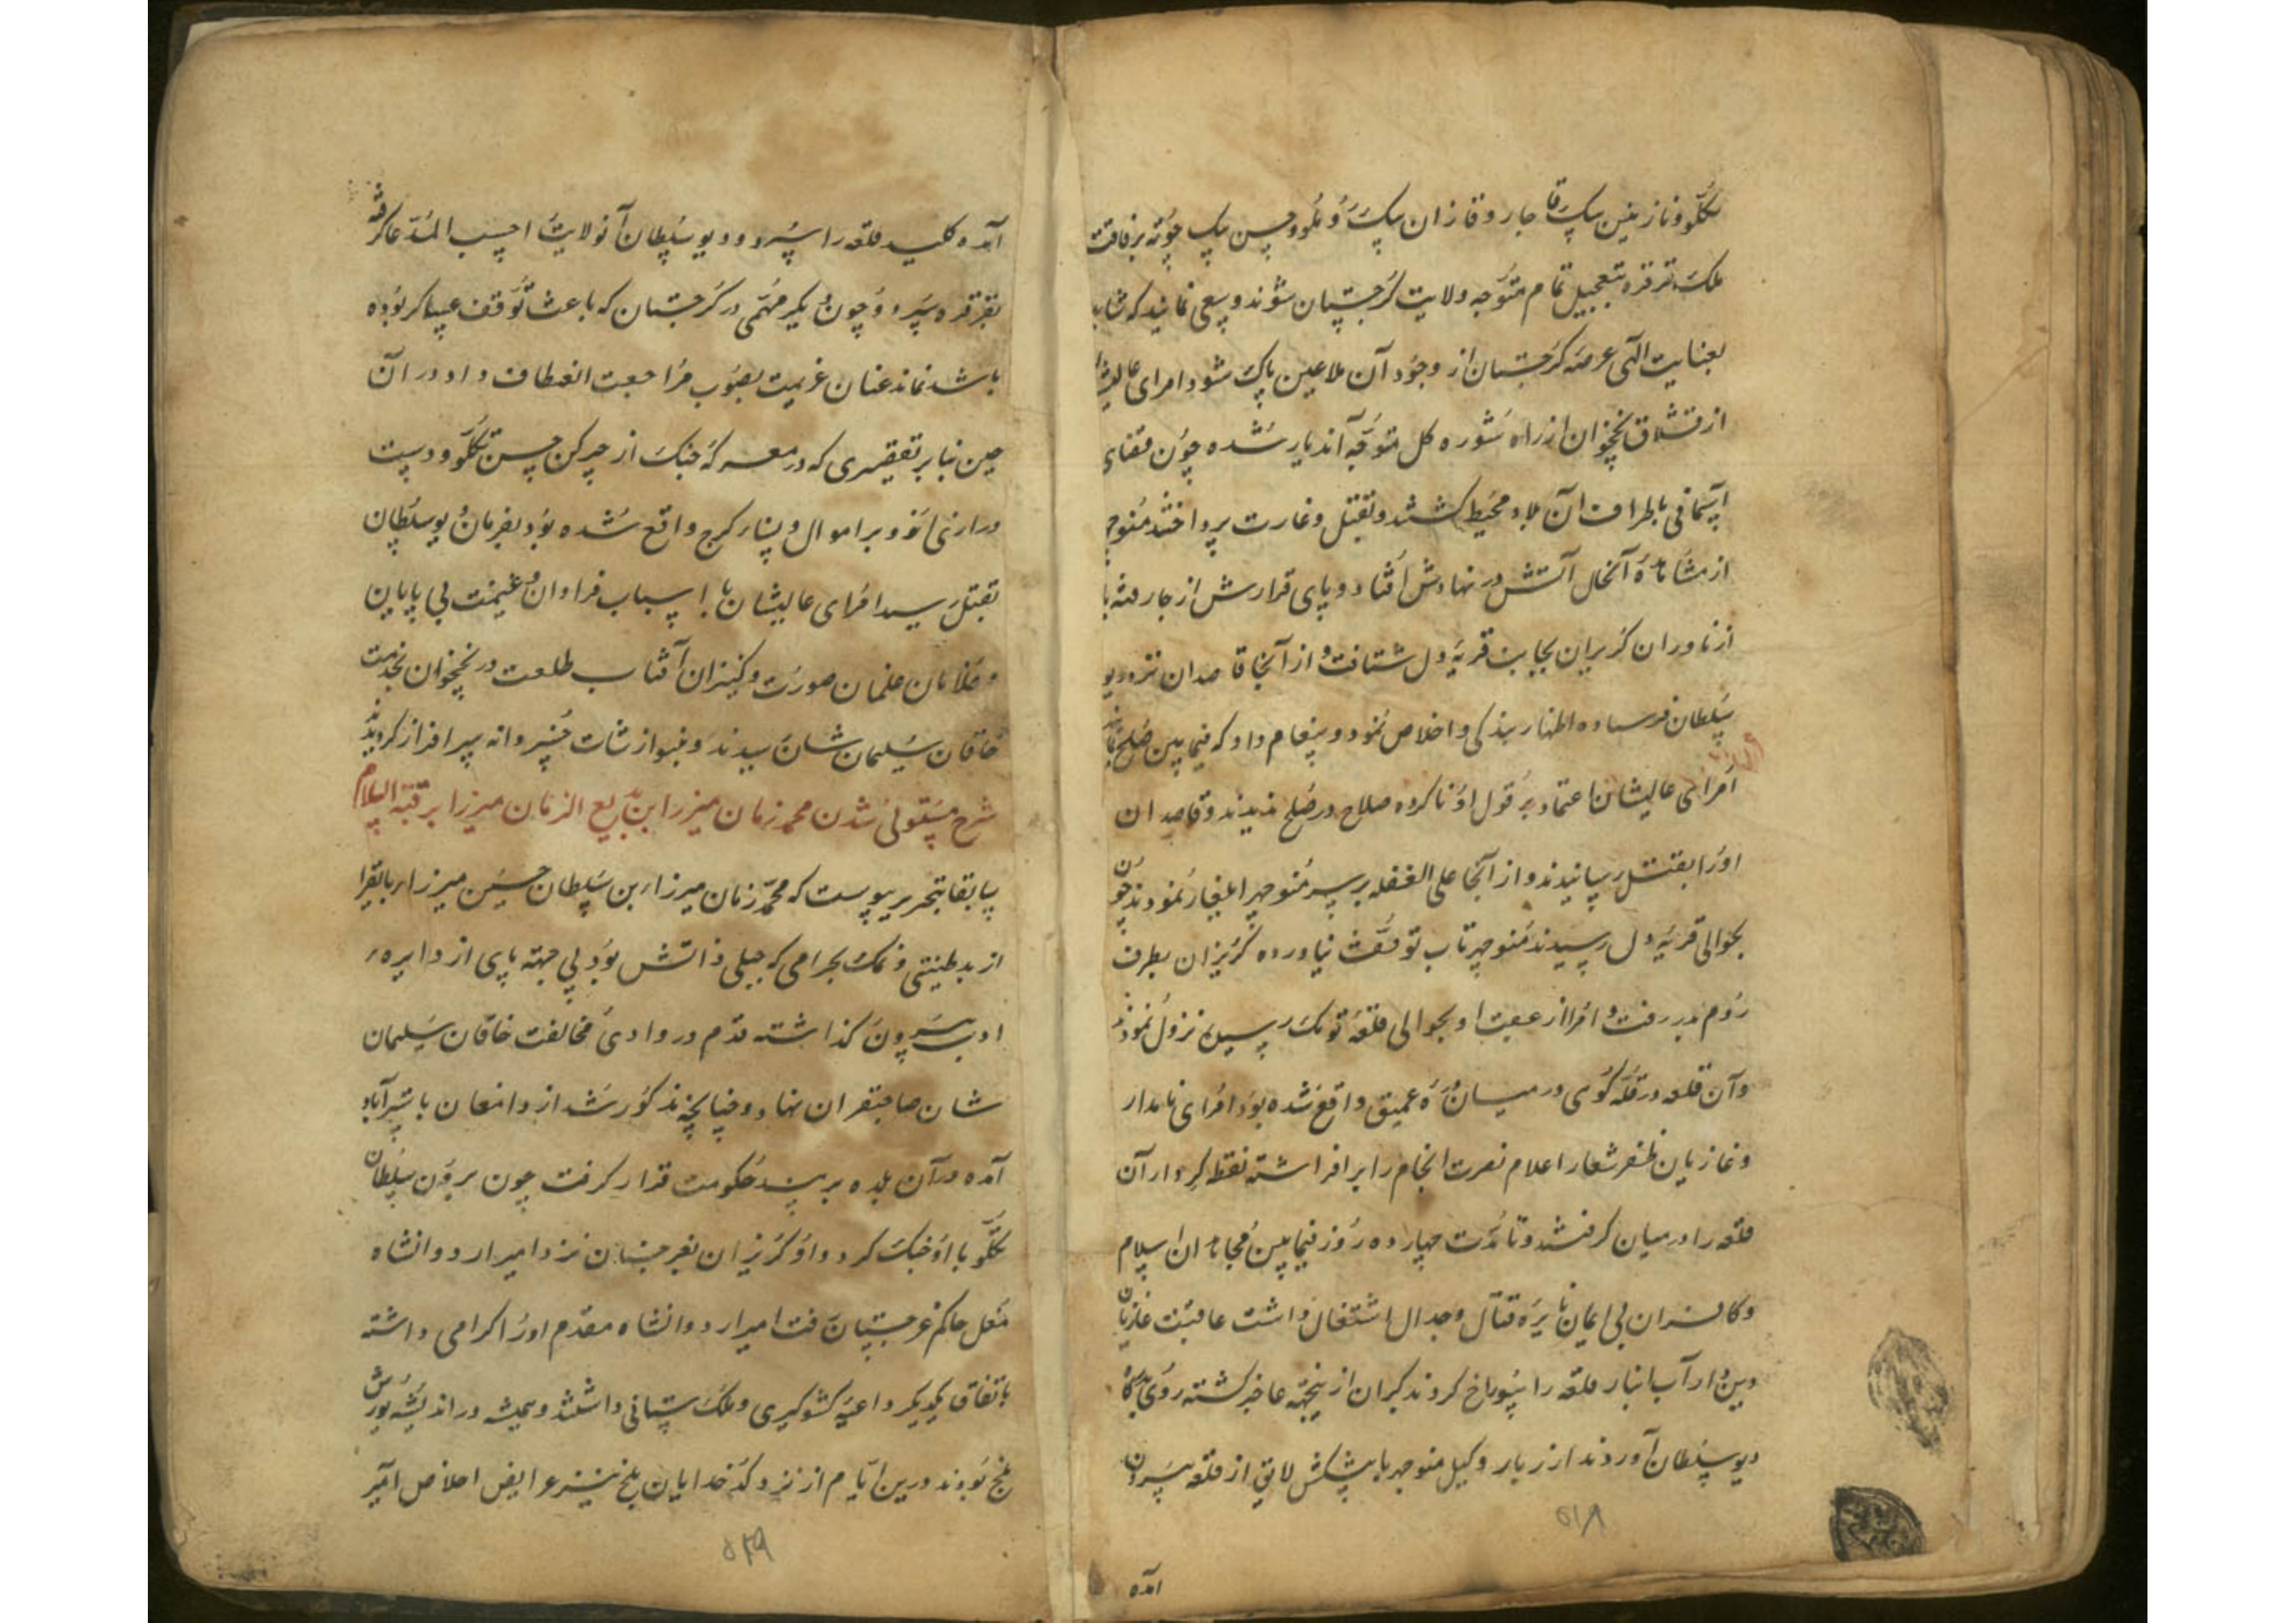 تکلو و نازنین بیک قاجار و قازان بیک روملو و حسن بیک چوته برفاقت
ملک قرقره بتعجیل تمام متوجه ولایت کرجستان شوند و سعی نمایند که شاید
بعنایت الهی عرصه کرجستان از وجود آن ملاعین پاک شود امرای عالیشان
از قشلاق نخچوان از راه شوره کل متوجه آندیار شده چون قضای
آسمانی باطراف آن بلاد محیط کشتند و بقتل و غارت پرداختند منوچهر
از مشاهده آنحال آتش در نهادش افتاد و پای قرارش از جا رفته با
ازناوران کریزان بجانب قریه دل شتافت و از آنجا قاصدان نزد دیو
سلطان فرستاده اظهار بندکی و اخلاص نمود و پیغام داد که فیمابین صلح نمایند
امرای عالیشان اعتماد بر قول او ناکرده صلاح در صلح ندیدند و قاصدان
او را بقتل رسانیدند و از آنجا علی الغفله بر سر منوچهر ایلغار نمودند چون
بحوالی قریه دل رسیدند منوچهر تاب توقف نیاورده کریزان بطرف
روم در رفت و امرا از عقب او بحوالی قلعه توک رسیده نزول نمودند
و آن قلعه در قله کوهی در میان دره عمیق واقع شده بود امرای نامدار
و غازیان ظفر شعار اعلام نصرت انجام را برافراشته نقطه کردار آن
قلعه را در میان کرفتند و تا مدت چهارده روز فیمابین مجاهدان اسلام
و کافران بی ایمان نایره قتال و جدال اشتغال داشت عاقبت غازیان
دین دار آب انبار قلعه را سوراخ کردند کبران ازینجهة عاجز کشته روی بدرکاه
دیو سلطان آوردند از زبار وکیل منوچهر با پیشکش لایق از قلعه بیرون
۵۱۸
آمده
آمده کلید قلعه را سپرد و دیو سلطان آنولایت را حسب المدعا کرفته
بقرقره سپرد و چون دیکر مهمی در کرجستان که باعث توقف عساکر بوده
باشد نماند عنان عزیمت بصوب مراجعت انعطاف داد و در آن
حین بنابر تقصیری که در معرکه جنک از چرکن حسن تکلو و دست
درازی او بر اموال و نساء کرج واقع شده بود بفرمان دیو سلطان
بقتل رسید امرای عالیشان با اسباب فراوان و غنیمت بی پایان
و غلامان غلمان صورت و کنیزان آفتاب طلعت در نخچوان بخدمت
خاقان سلیمان شان رسیدند و بنوازشات خسروانه سرافراز کردیدند
شرح مستولی شدن محمد زمان میرزا ابن بدیع الزمان میرزا بر قبة الاسلام
سابقا بتحریر پیوست که محمد زمان میرزاء بن سلطان حسین میرزاء بایقرا
از بد طینتی و نمک بحرامی که جبلی ذاتش بود بی جهة پای از دایره
ادب بیرون کذاشته قدم در وادی مخالفت خاقان سلیمان
شان صاحبقران نهاد و چنانچه مذکور شد از دامغان باستراباد
آمده در آن بلده بر مسند حکومت قرار کرفت چون برون سلطان
تکلو با او جنک کرد و او کریزان بغرجستان نزد امیر اردوانشاه
مغل حاکم غرجستان رفت امیر اردوانشاه مقدم او را کرامی داشته
باتفاق یکدیکر داعیه کشورکیری و ملک ستانی داشتند و همیشه در اندیشه یورش
بلخ بودند درین ایام از نزد کدخدایان بلخ نیز عرایض اخلاص آمیز
۵۱۹